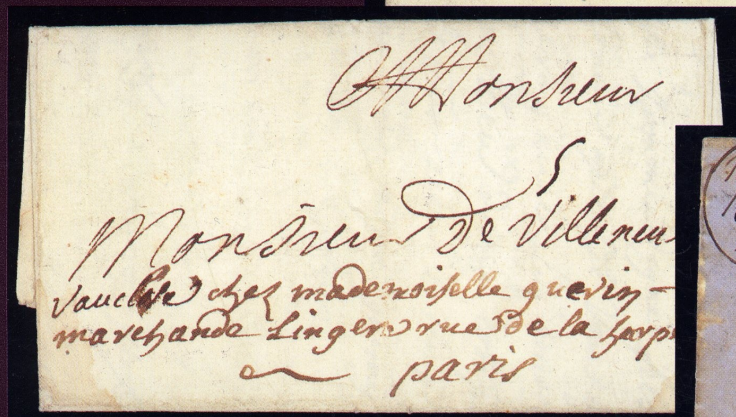 A Monsieur
5
Monsieur De Villeneu
vaucluse chez mademoiselle guerin
marchande Lingere rue de la harp
paris